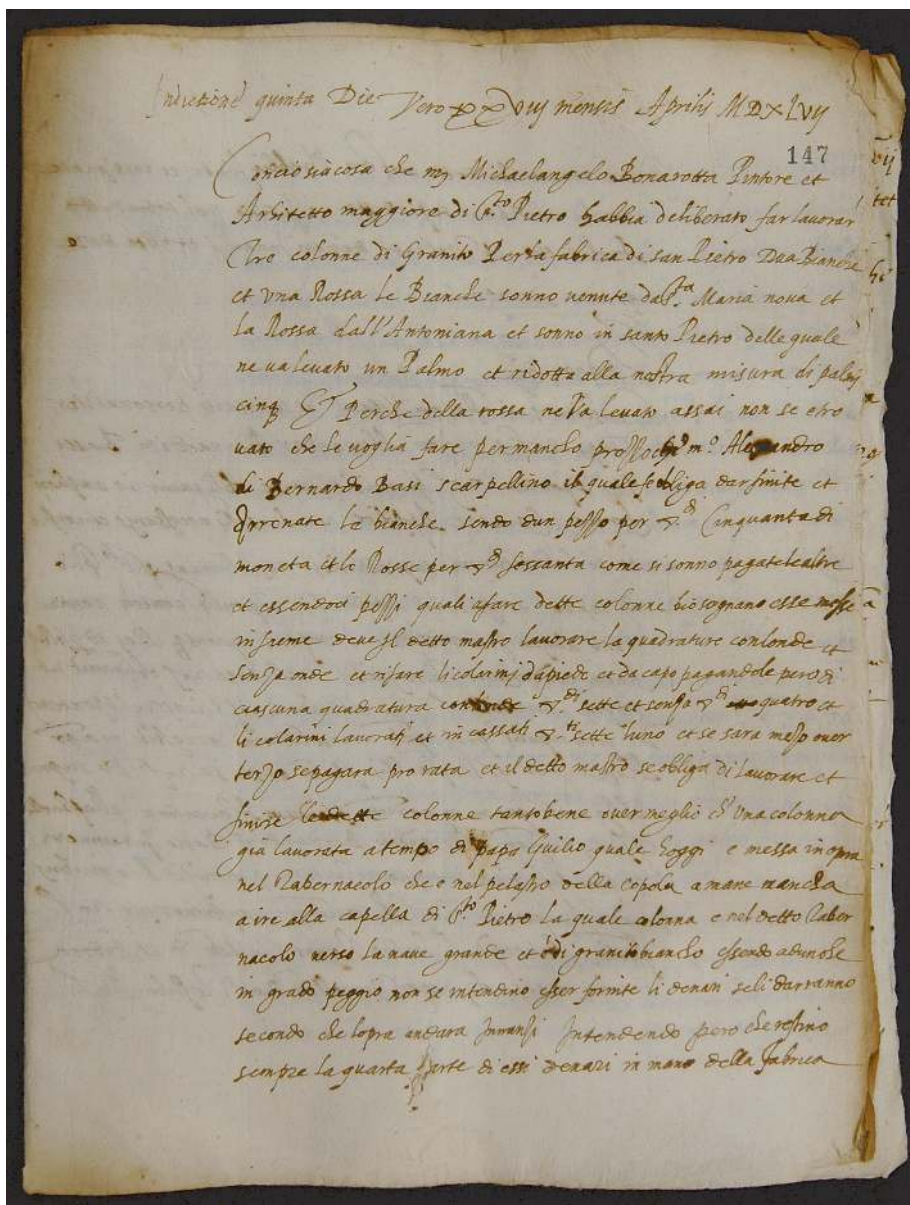 Indictione quinta Die Vero xxviij mensis Aprilis MDXLVIJ
147
Conciosiacosa che mʒ Michaelangelo Bonarotta Pintore et
Arhitetto maggiore di S.to Pietro habbia deliberato far lavorar
Tre colonne di Granito Per la fabrica di san Pietro Dua Bianche
et una Rossa le Bianche sonno venute da S.ta Maria nova et
la Rossa dall'Antoniana et sonno in santo Pietro delle quale
ne va levato un Palmo et ridotta alla nostra misura di palmi
cinqʒ Et Perche della rossa ne va levato assai non se e tro
vato che le voglia fare per mancho prezzo che m.o Alessandro
di Bernardo Basi scarpellino il quale se obliga dar finite et
Arrenate le bianche sendo dun pezzo per Cinquanta di
moneta et le Rosse per sessanta come si sonno pagate le altre
et essendoci pezzi quali a fare dette colonne biosognano esse messe
insieme deve il detto mastro lavorare la quadrature con londe et
senza onde et rifare li colarini da piede et da capo pagandole pero di
ciascuna quadratura con onde sette et senza quatro et
li colarini lavorati et in cassati sette luno et se sara mezo over
terzo se pagara pro rata et il detto mastro se obliga di lavorare et
finire le dette colonne tanto bene over meglio d' una colonna
gia lavorata a tempo di papa Guilio quale hoggi e messa in opra
nel Tabernacolo che e nel pelastro della copola a mane mancha
a ire alla capella di S.to Pietro la quale colonna e nel detto Taber
nacolo verso la nave grande et e di granito biancho essendo
in grado peggio non se intendino esser fornite li denari se li darranno
secondo che lopra andara Innanzi Intendendo pero che restino
sempre la quarta Parte di essi denari in mano della fabrica